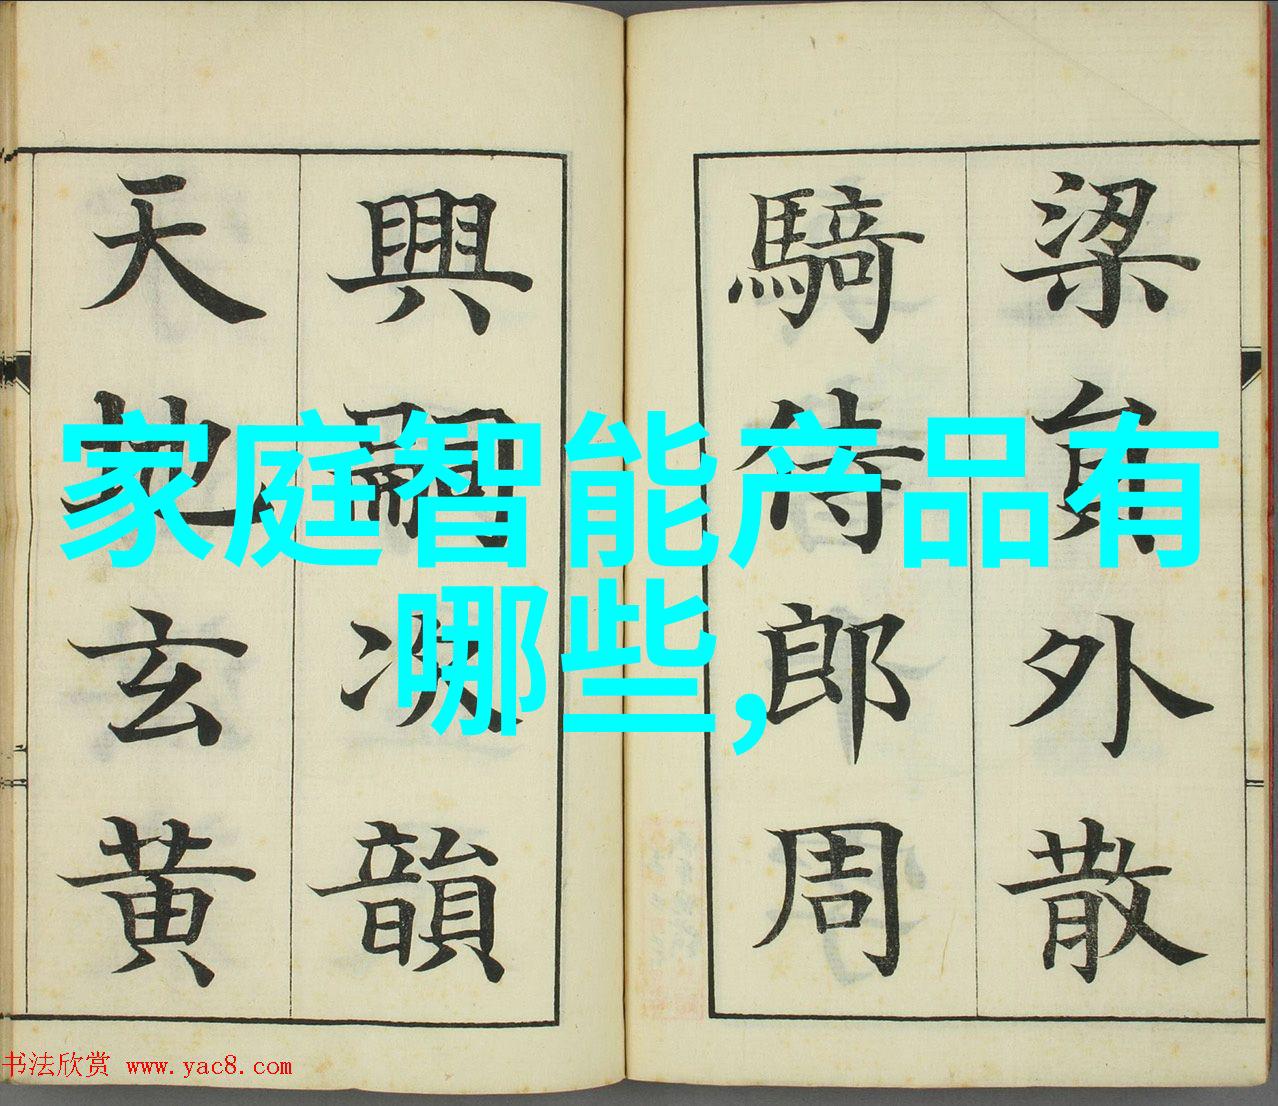 梁員外散
騎侍郎周
興嗣次韻
天地玄黄
家庭智能产品有
哪些,
书法欣赏 www.yac8.com